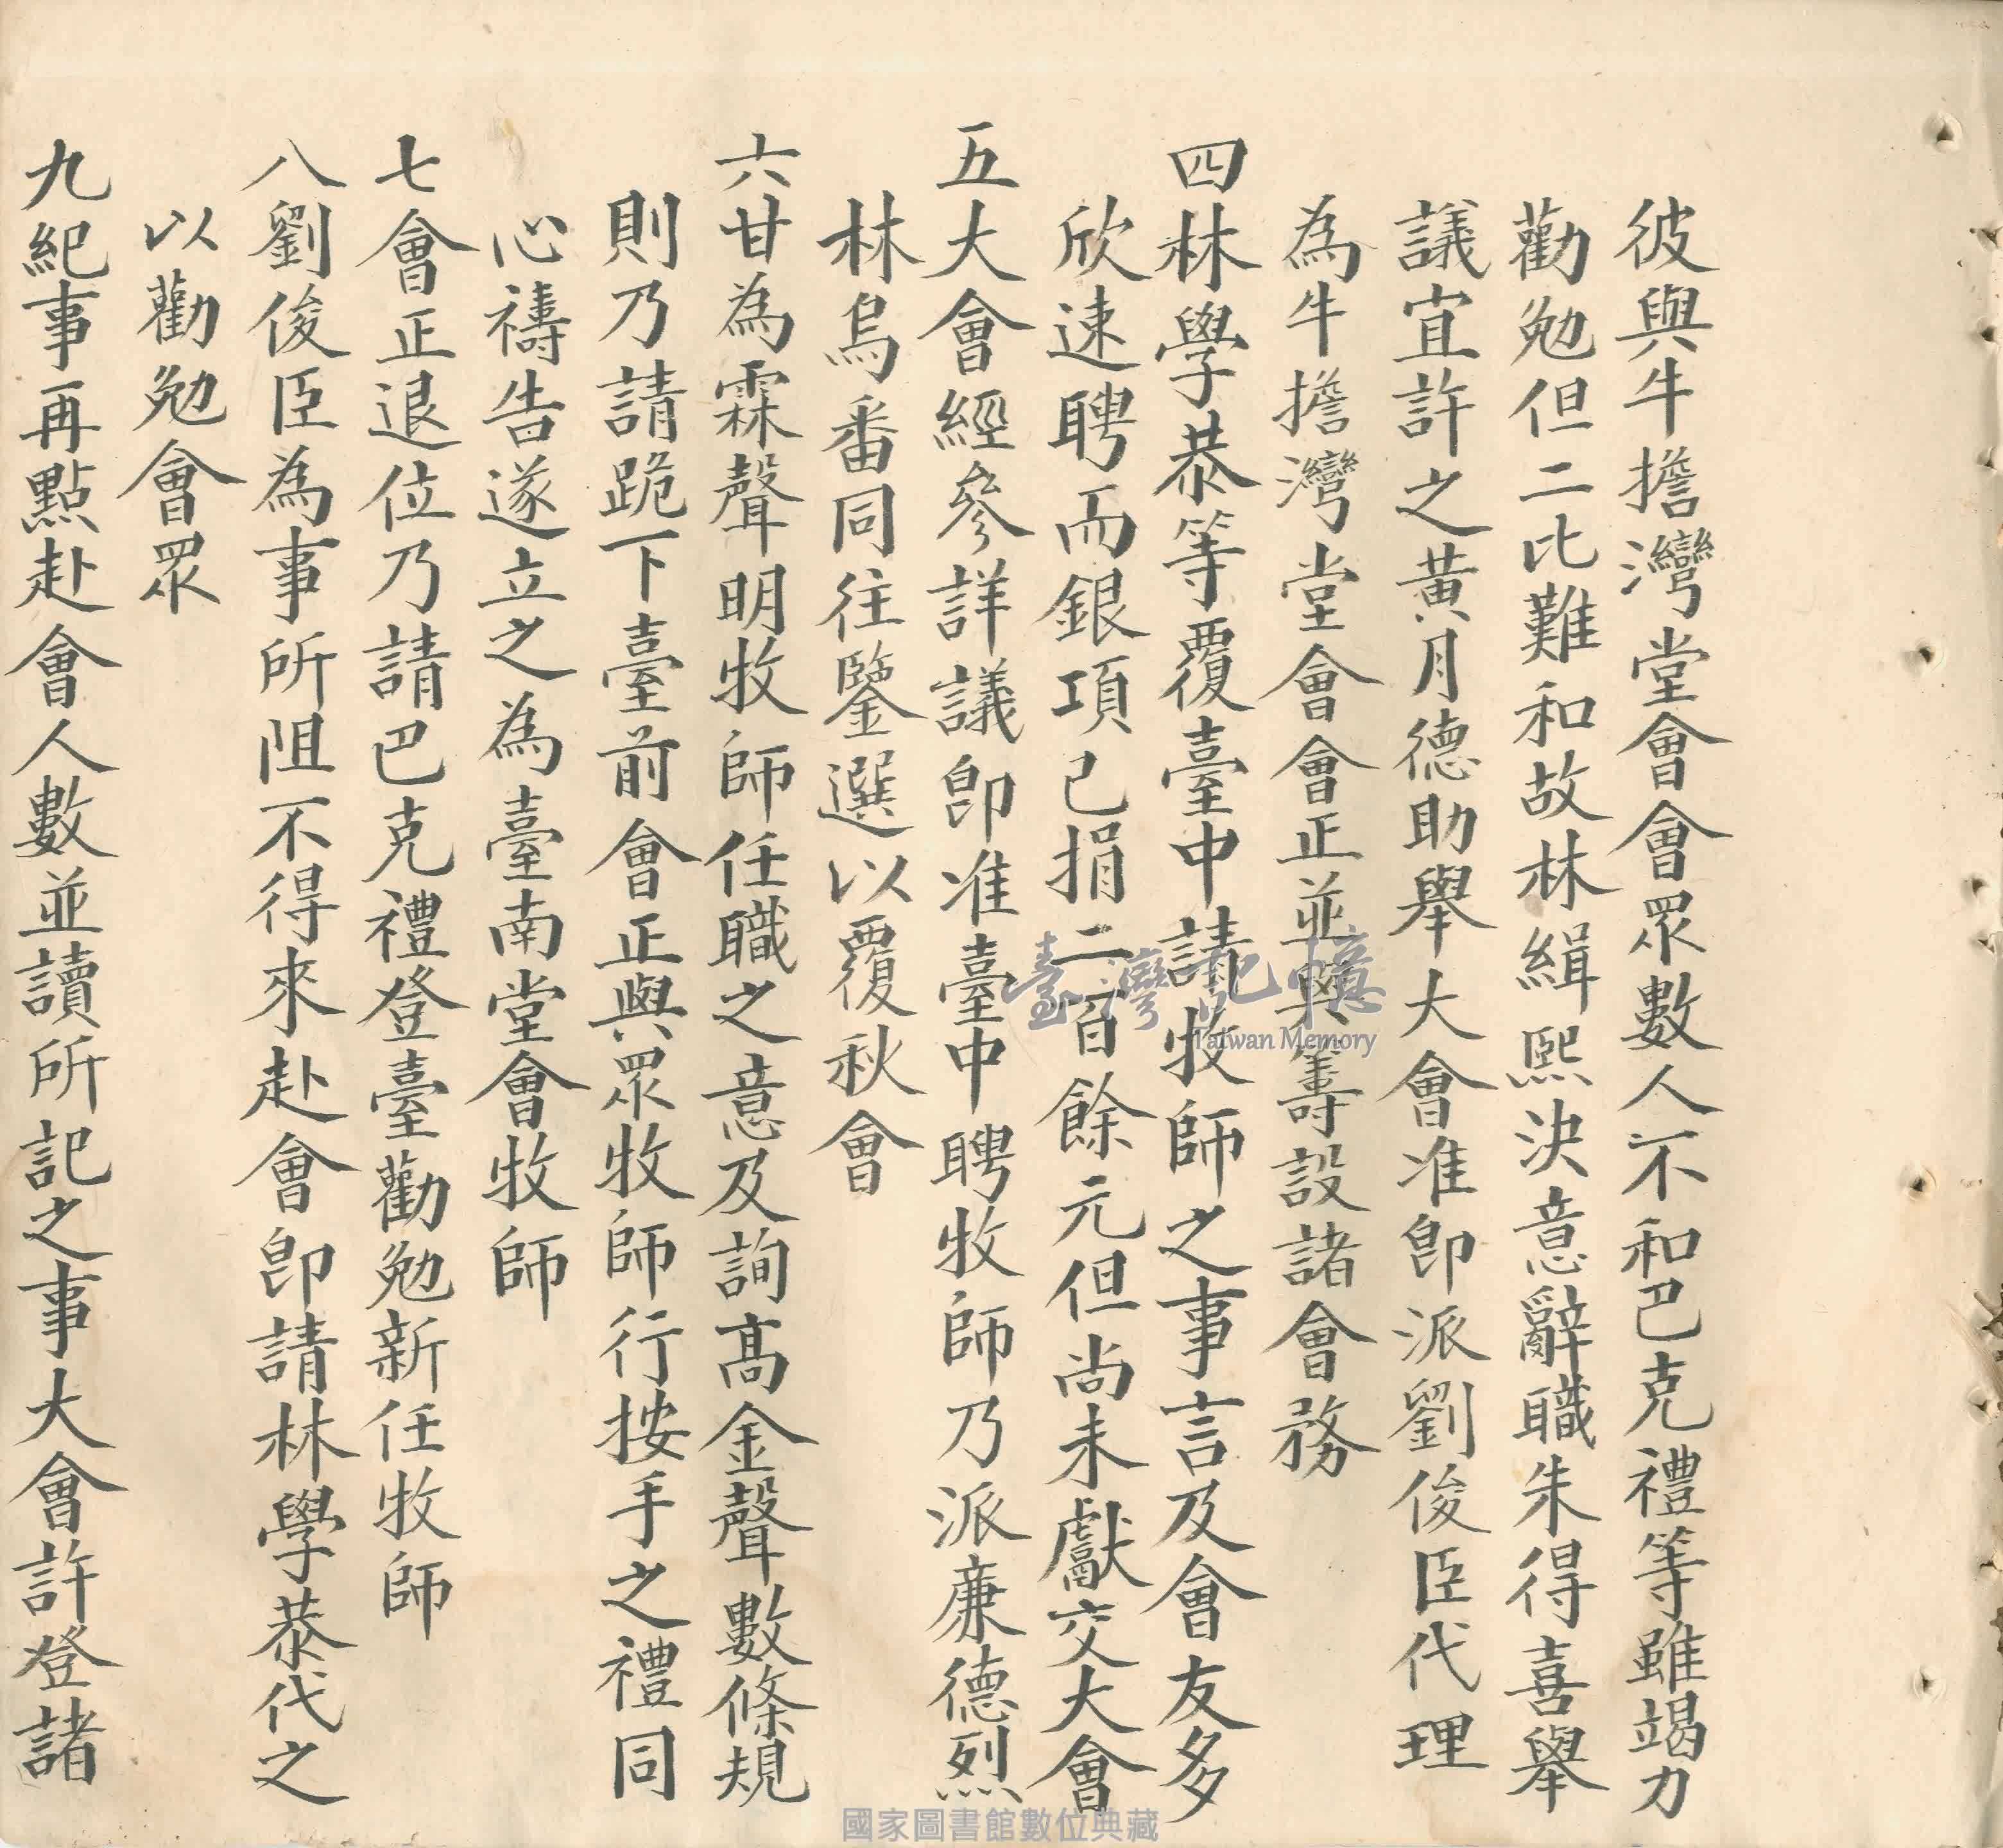 彼與牛擔灣堂會會眾數人不和巴克禮等雖竭力
勸勉但二比難和故林緝熙決意辭職朱得喜舉
議宜許之黃月德助舉大會准即派劉俊臣代理
為牛擔灣堂會會正並與籌設諸會務
四林學恭等覆臺中請牧師之事言及會友多
欣速聘而銀項已捐二百餘元但尚未獻交大會
五大會經參詳議即准臺中聘牧師乃派廉德烈
林烏番同往鑒選以覆秋會
六甘為霖聲明牧師任職之意及詢高金聲數條規
則乃請跪下臺前會正與眾牧師行按手之禮同
心禱告遂立之為臺南堂會牧師
七會正退位乃請巴克禮登臺勸勉新任牧師
八劉俊臣為事所阻不得來赴會即請林學恭代之
以勸勉會眾
九紀事再點赴會人數並讀所記之事大會許登諸
臺灣記憶
Taiwan Memory
國家圖書館數位典藏